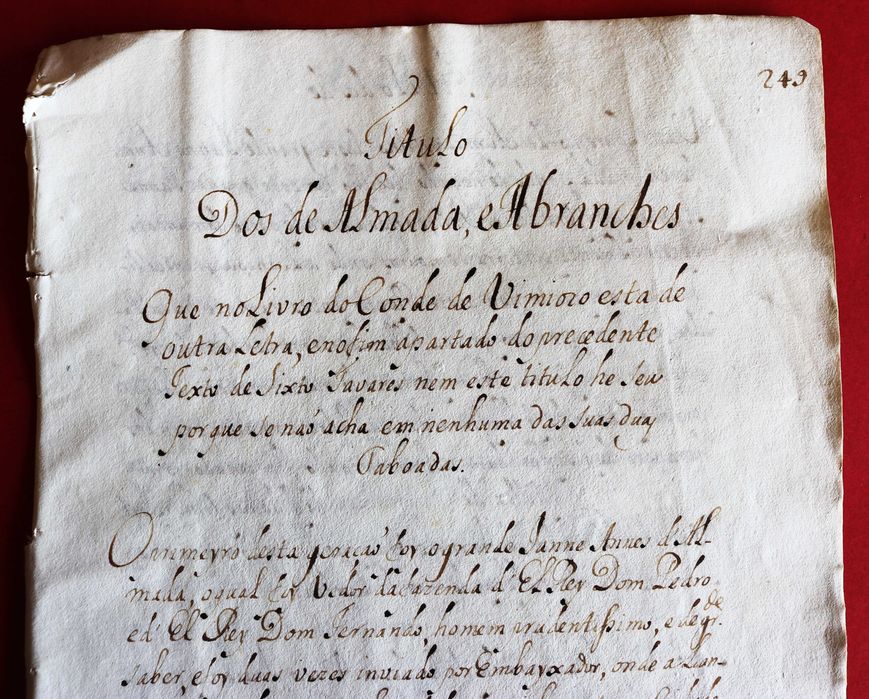 249
Titulo
Dos de Almada, e Abranches
Que no Livro do Conde de Vimiozo esta de
outra Letra, e no fim apartado do precedente
Texto de Sixto Tavares nem este titulo he seu
porque se naõ acha em nenhuma das suas duas
Taboadas.
O primeyro desta geraçaõ foy o grande Janne Annes d'Al-
mada, o qual foy Vedor da fazenda d'El Rey Dom Pedro
e d'El Rey Dom Fernando, homem prudentissimo, e de gr.de
saber, e foy duas vezes inviado por Embayxador, onde a